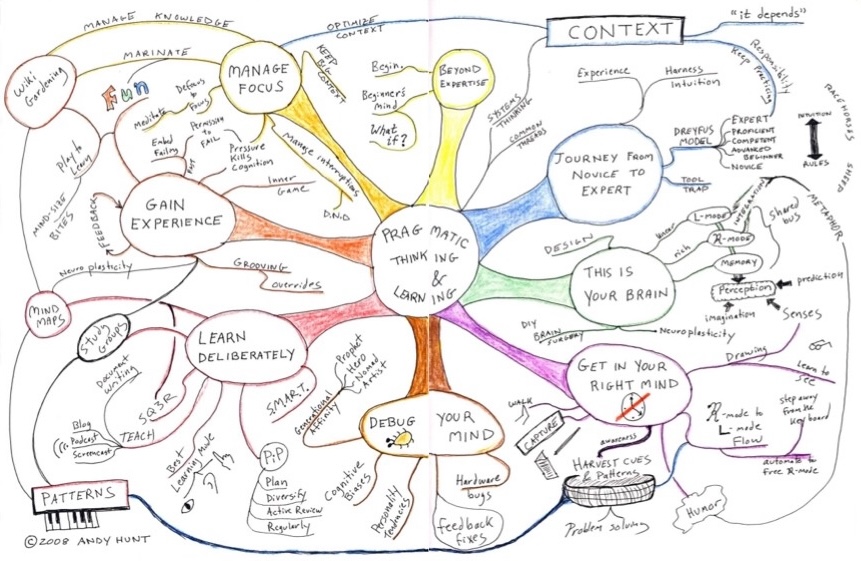 MANAGE KNOWLEDGE
MARINATE
Wiki
Gardening
MANAGE
FOCUS
OPTIMIZE
CONTEXT
KEEP
BIG
CONTEXT
Begin
Beginner's
Mind
What
if?
BEYOND
EXPERTISE
SYSTEMS
THINKING
COMMON
THREADS
CONTEXT
"it depends"
Responsibility
Keep Practicing
Experience
Harness
Intuition
JOURNEY FROM
NOVICE TO
EXPERT
DREYFUS
MODEL
EXPERT
PROFICIENT
COMPETENT
ADVANCED
BEGINNER
NOVICE
TOOL
TRAP
INTUITION
RULES
RACE HORSES
SHEEP
Fun
Defocus
Focus
Meditate
Permission
to
FAIL
Embed
Failing
Pressure
Kills
Cognition
Inner
Game
Manage interruptions
D.N.D
Play to
Learn
MIND-SIZE
BITES
FEEDBACK
GAIN
EXPERIENCE
GROOVING
overrides
Neuroplasticity
PRAGMATIC
THINKING
&
LEARNING
THIS IS
YOUR BRAIN
DESIGN
linear
rich
L-MODE
R-MODE
MEMORY
INTEGRATION
Shared
bus
METAPHOR
Perception
prediction
imagination
Senses
DIY
BRAIN
SURGERY
Neuroplasticity
MIND
MAPS
Study
Groups
LEARN
DELIBERATELY
Document
Writing
SQ3R
TEACH
Blog
Podcast
Screencast
Best
Learning Mode
S.M.A.R.T.
PiP
Plan
Diversify
Active Review
Regularly
Generational
Affinity
Prophet
Hero
Nomad
Artist
DEBUG
YOUR
MIND
Cognitive
Biases
Personality
Tendencies
Hardware
bugs
feedback
fixes
GET IN YOUR
RIGHT MIND
WALK
CAPTURE
awareness
HARVEST CUES
& Patterns
Problem solving
Drawing
Learn to
See
R-mode to
L-mode
Flow
step away
from the
Keyboard
automate to
free R-mode
Humor
PATTERNS
©2008 ANDY HUNT